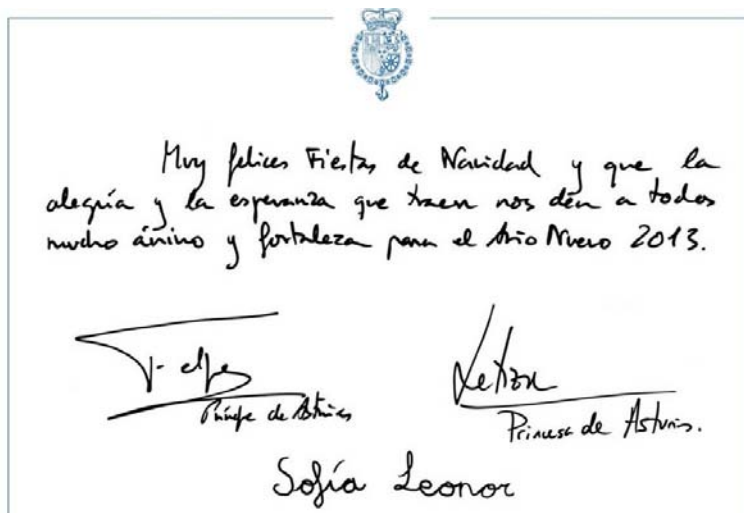 Muy felices Fiestas de Navidad y que la
alegría y la esperanza que traen nos den a todos
mucho ánimo y fortaleza para el Año Nuevo 2013.
Felipe Letizia
Príncipe de Asturias Princesa de Asturias.
Sofía Leonor